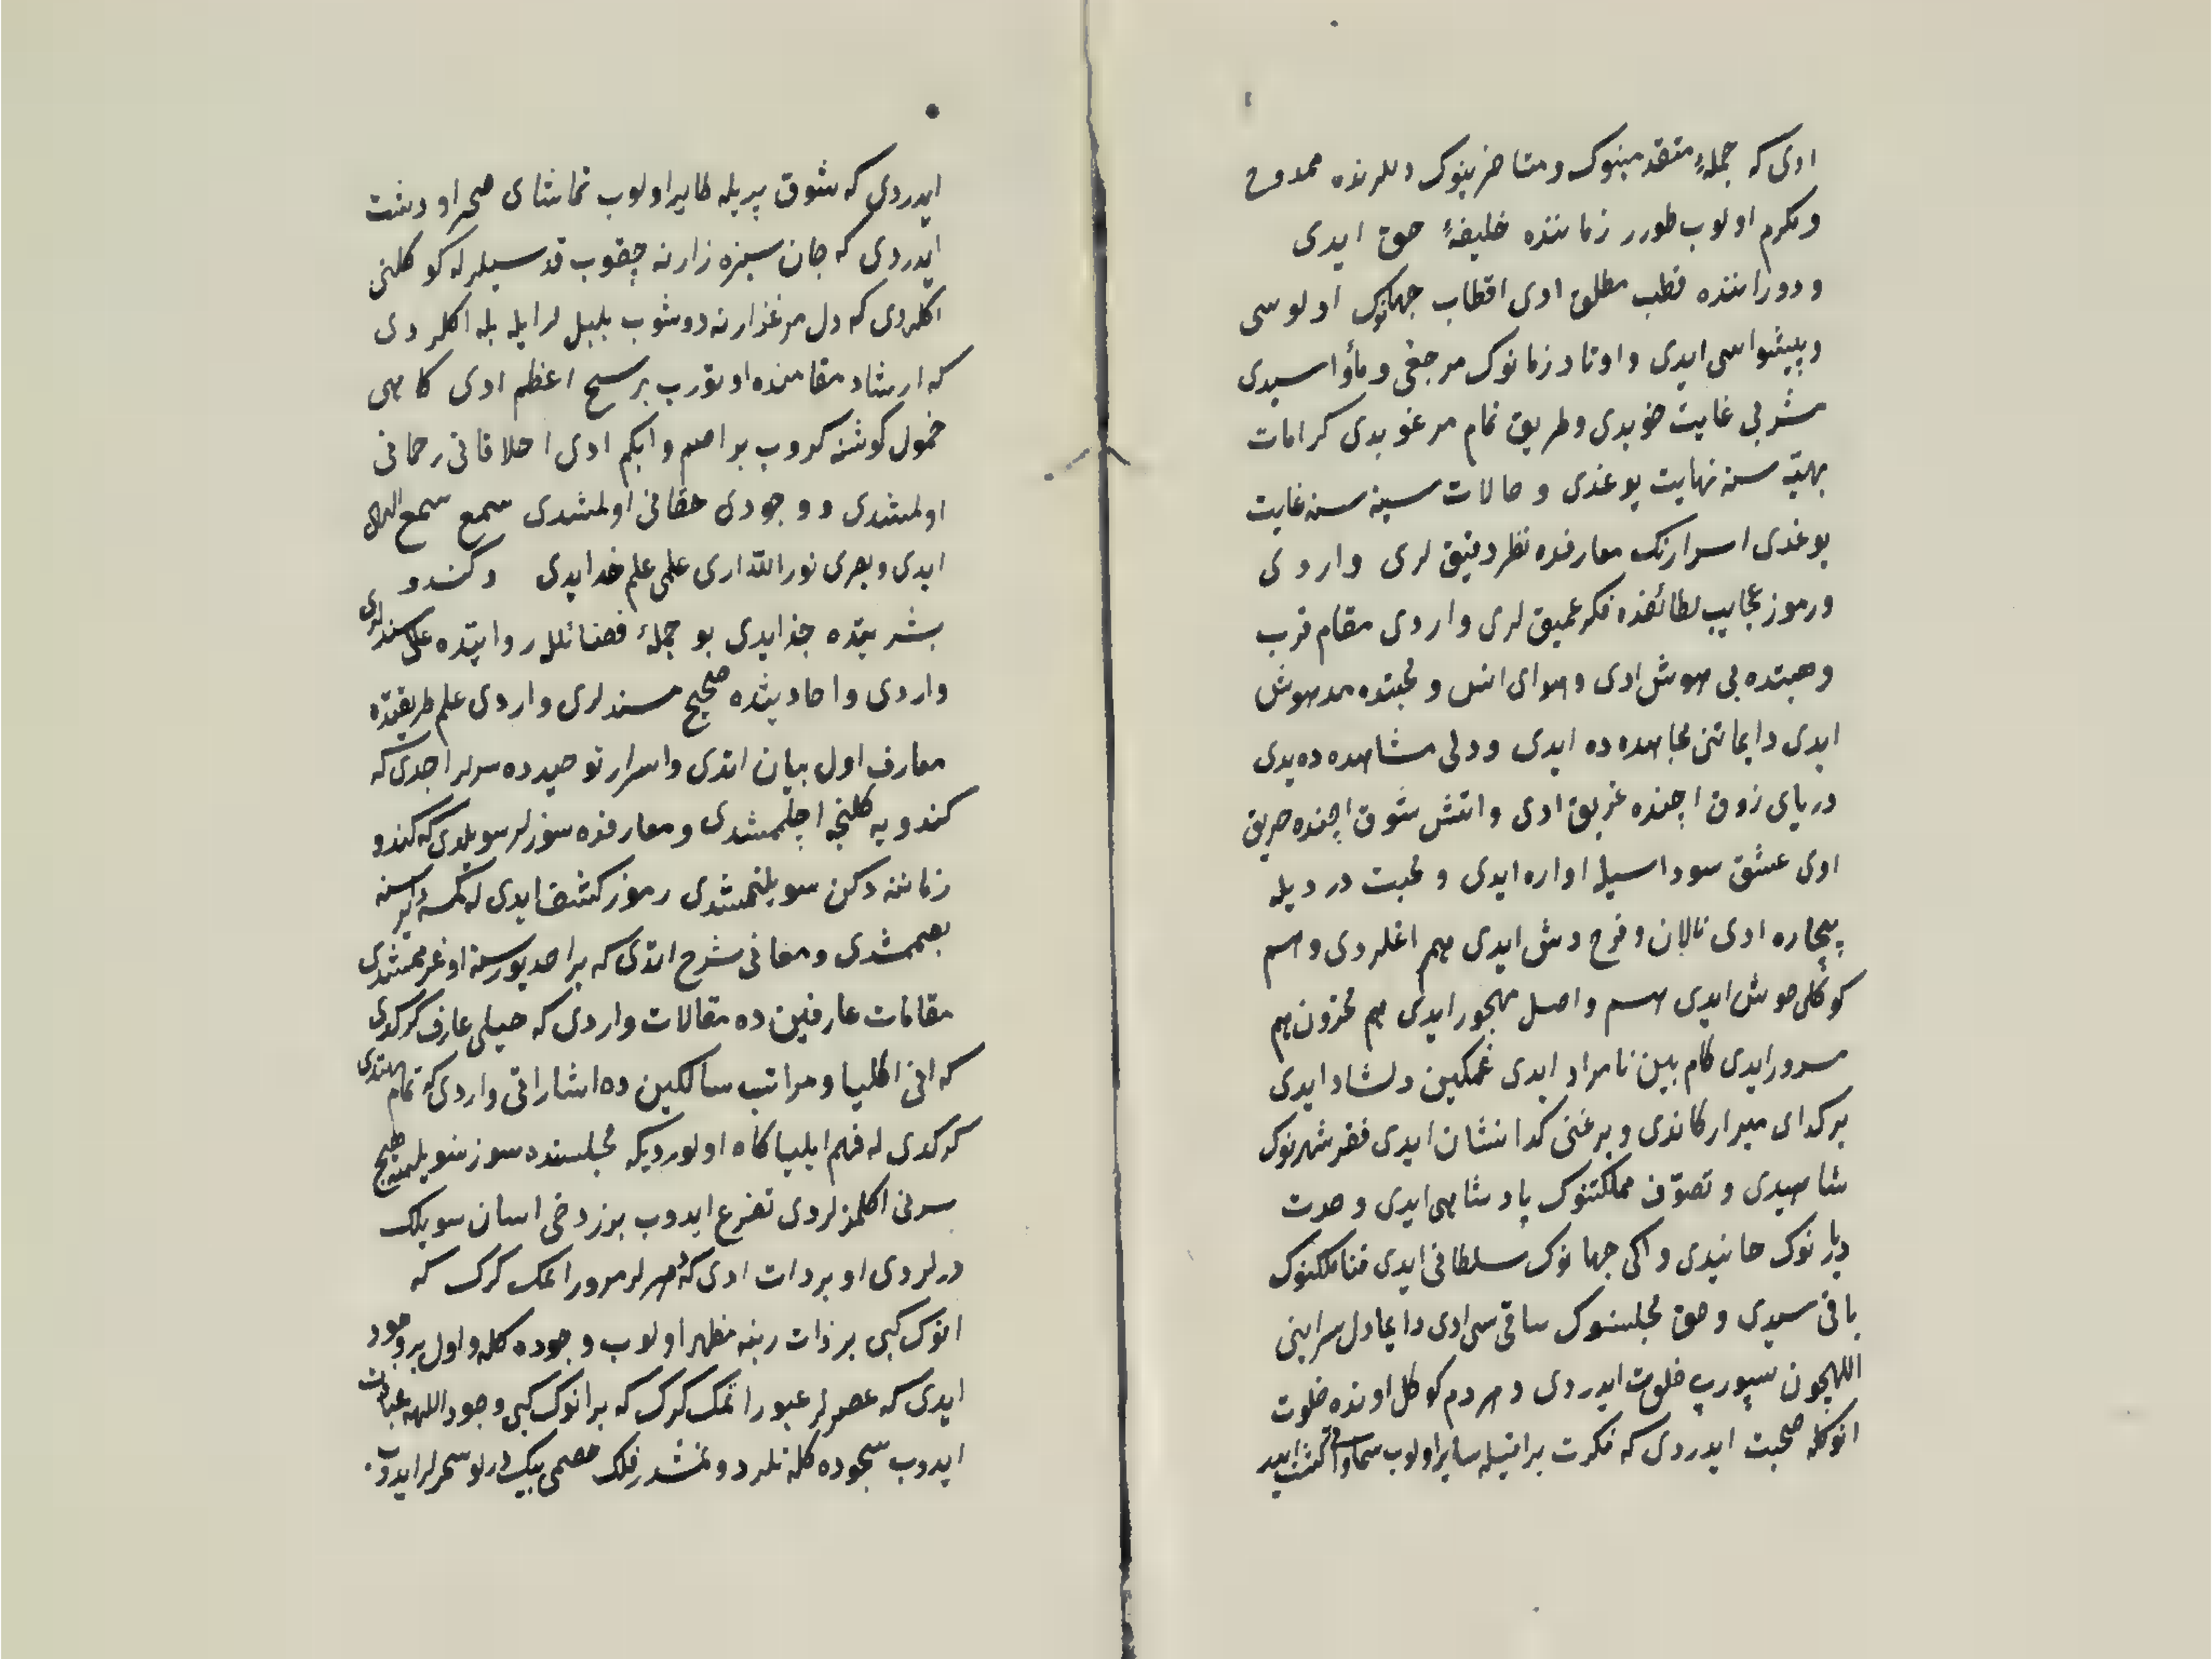 ادی که جملهٔ متقدمینوک و متاخرینوک دللرنده ممدوح
و مکرم اولوب طورر زماننده خلیفهٔ حق ایدی
و دوراننده قطب مطلق ادی اقطاب جهانوک اولوسی
و پیشواسی ایدی و اوتاد زمانوک مرجعی و مأواسیدی
مشربی غایت خوبدی و طریق تمام مرغوبدی کرامات
بهیّه سنه نهایت یوغدی و حالات سنیه سنه غایت
یوغدی اسرارنک معارفده نظر دقیق لری واردی
و رموز عجایب لطائفده فکر عمیق لری واردی مقام قرب
وهبتده بی هوش ادی و هوای انس و محبتده مدهوش
ایدی دایما تنی مجاهده ده ایدی و دلی مشاهده ده یدی
دریای ذوق اچنده غریق ادی و اتش شوق اچنده حریق
ادی عشق سوداسیله اواره ایدی و محبت دردیله
بیچاره ادی نالان و فرح وش ایدی هم اغلردی و هم
کوکلی خوش ایدی هم واصل مهجور ایدی هم محزون هم
مسرور ایدی کام بین نامراد ایدی غمکین دلشاد ایدی
بر کدای میرارکاندی و بر غنی کدا نشان ایدی فقر شهرنوک
شاهیدی و تصوّف مملکتنوک پادشاهی ایدی وحدت
دیارنوک خانیدی و اکی جهانوک سلطانی ایدی فنا ملکنوک
باقی سیدی و حق مجلسنوک ساقی سی ادی دایما دل سراینی
اللهچون سپورپ خلوت ایدردی و هردم کوکل اونده خلوت
انوکله صحبت ایدردی که فکرت براقیله سایر اولوب سماواتی کشت ایدر
ایدردی که شوق پریله طایر اولوب تماشای صحرا و دشت
ایدردی که جان سبزه زارنه چقوب قدسیلرله کوکلنی
اکلردی که دل مرغزارنه دوشوب بلبل لرایله بله اکلردی
که ارشاد مقامنده اوتورب بر شیخ اعظم ادی کاهی
خمول کوشه کروب بر اصم و ابکم ادی اخلاقانی رحمانی
اولمشدی و وجودی حقانی اولمشدی سمع سمع الله
ایدی و بصری نور الله اری علمی علم خدایدی و کندو
بشریتده جذایدی بو جملهٔ فضائللر روایتده علی سندلری
واردی و احادیثده صحیح مسندلری واردی علم طریقتده
معارف اول بیان اتدی و اسرار توحیده سرلر اجدی که
کندویه کلنجه اچلممشدی و معارفده سوزلر سویلدی که کندو
زماننه دکن سویلنممشدی رموز کشف ایدی که کمسه
بعممشدی و معانی شرح اتدی که بر احد بوسنه اوغرممشدی
مقامات عارفین ده مقالات واردی که خیلی عارف کرکدی
که انی اکلیا و مراتب سالکین ده اشاراتی واردی که تمام مهتدی
کرکدی که فهم ایلیا کاه اولوردیکه مجلسنده سوز سویلیجک هیچ
سرنی اکلمزلردی تضرع ایدوب بزر دخی اسان سویلک
درلردی او بر ذات ادی که دهرلر مرور اتمک کرک که
انوک کبی بر ذات رینه مظهر اولوب وجوده کله و اول بر وجود
ایدی که عصرلر عبور اتمک کرک که بر انوک کبی وجود اللهه عبادت
ایدوب سجوده کله نلر دونمشدر فلک خصمی بیک درلو سحرلر ایدوب